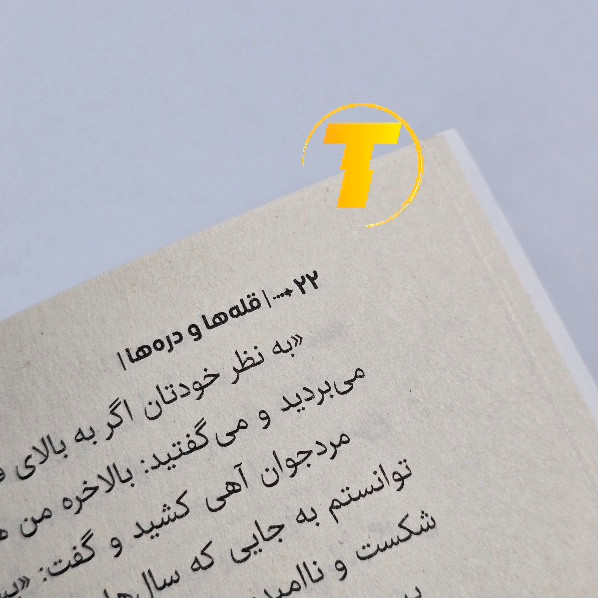 T
۲۲ | قله‌ها و دره‌ها |
«به نظر خودتان اگر به بالای
می‌بردید و می‌گفتید: بالاخره من
مردجوان آهی کشید و گفت:
توانستم به جایی که
شکست و